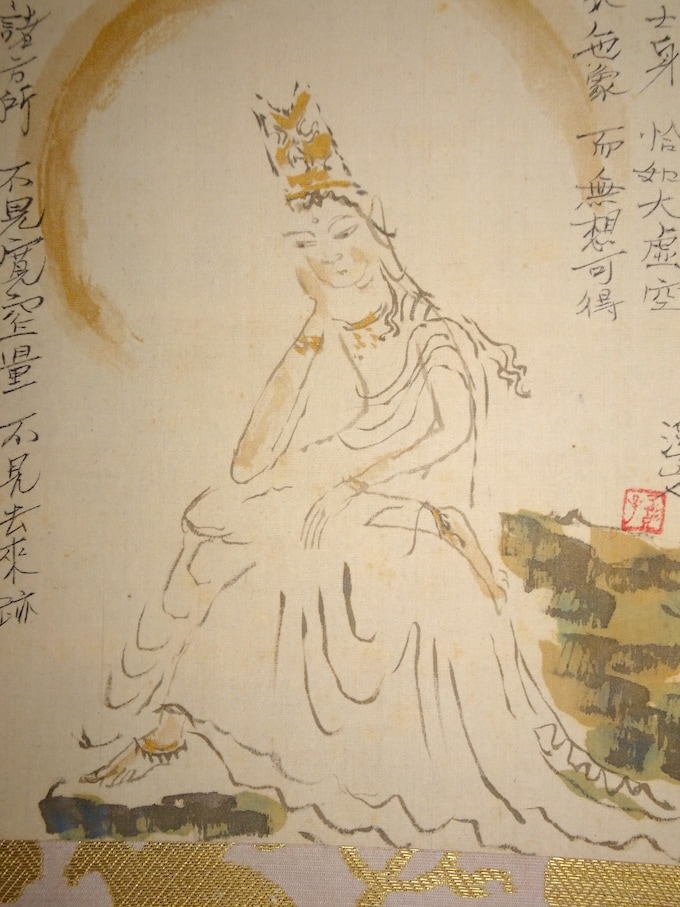 士身 恰如大虛空
象 而無想可得
諸方所 不見寬窄量 不見去來跡